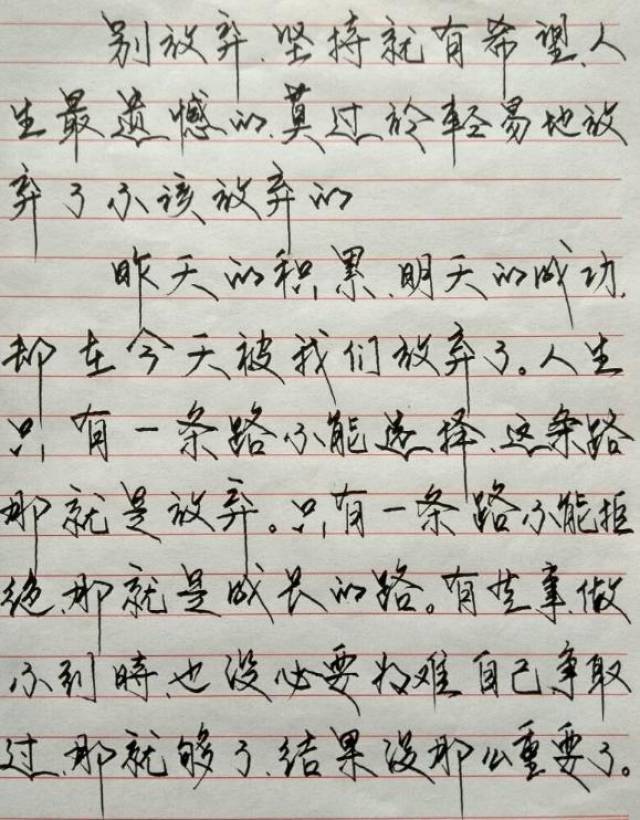 别放弃、坚持就有希望、人
生最遗憾的、莫过於轻易地放
弃了不该放弃的
昨天的积累、明天的成功、
却在今天被我们放弃了。人生
只有一条路不能选择、这条路
那就是放弃。只有一条路不能拒
绝、那就是成长的路。有些事、做
不到時、也没必要为难自己争取
过、那就够了、结果没那么重要了。